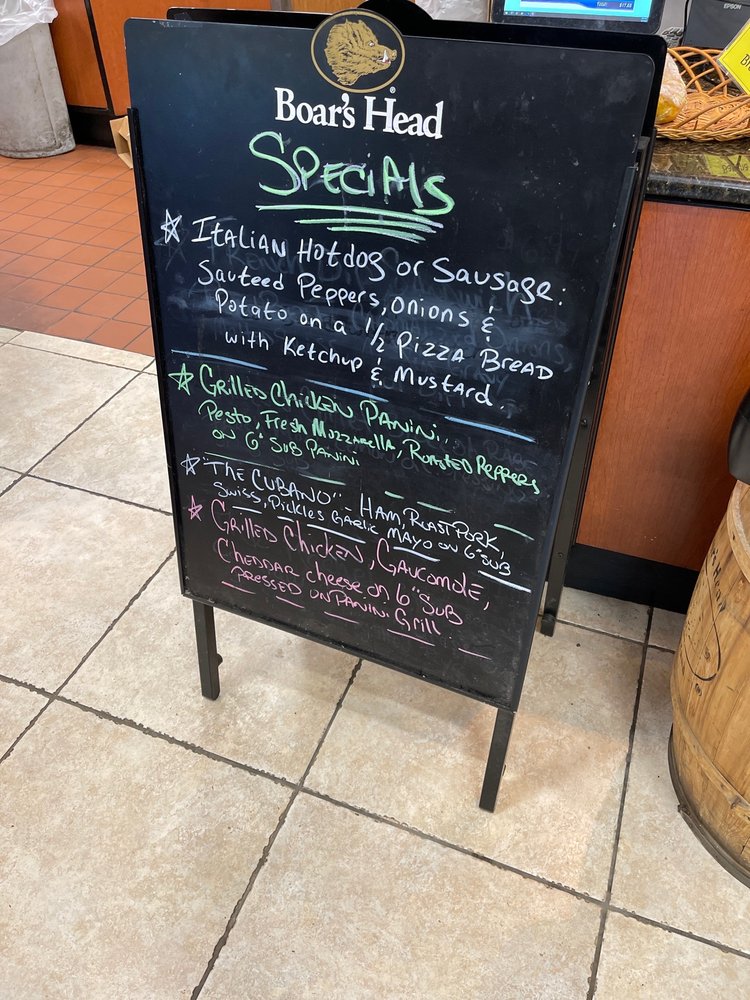 Boar's Head®
Specials
Italian Hotdog or Sausage:
Sauteed Peppers, Onions &
Potato on a 1/2 Pizza Bread
with Ketchup & Mustard.
Grilled Chicken Panini,
Pesto, Fresh Mozzarella, Roasted Peppers
on 6" Sub Panini
"The Cubano" - Ham, Roast Pork,
Swiss, Pickles Garlic Mayo on 6" Sub
Grilled Chicken, Gaucomole,
Cheddar cheese on 6" Sub
Pressed on Panini Grill.
EPSON